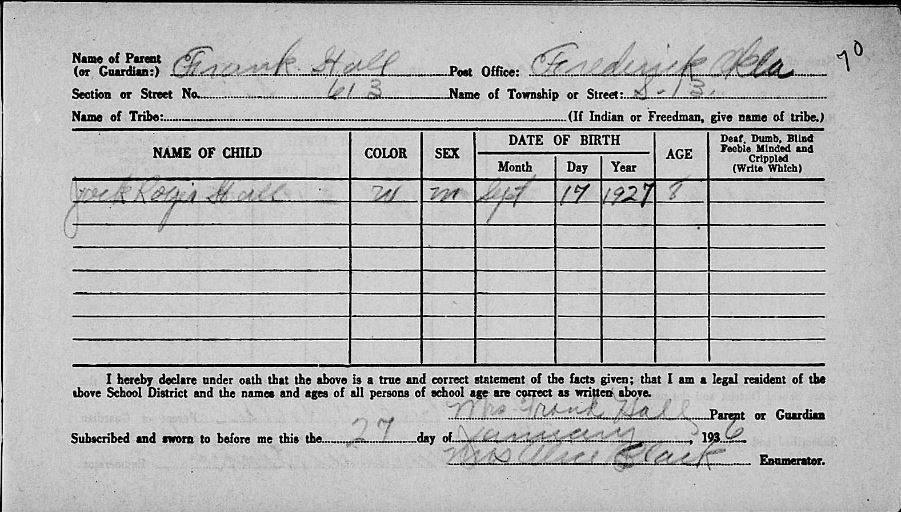 70
Name of Parent (or Guardian:) Frank Hall Post Office: Frederick Okla
Section or Street No. 613 Name of Township or Street: S. 13
Name of Tribe: (If Indian or Freedman, give name of tribe.)
NAME OF CHILD COLOR SEX DATE OF BIRTH Month Day Year AGE Deaf, Dumb, Blind Feeble Minded and Crippled (Write Which)
Jack Hall W M Sept 17 1927 8
I hereby declare under oath that the above is a true and correct statement of the facts given; that I am a legal resident of the
above School District and the names and ages of all persons of school age are correct as written above.
Mrs Frank Hall Parent or Guardian
Subscribed and sworn to before me this the 27 day of January, 1936
Mrs Alice Clark Enumerator.